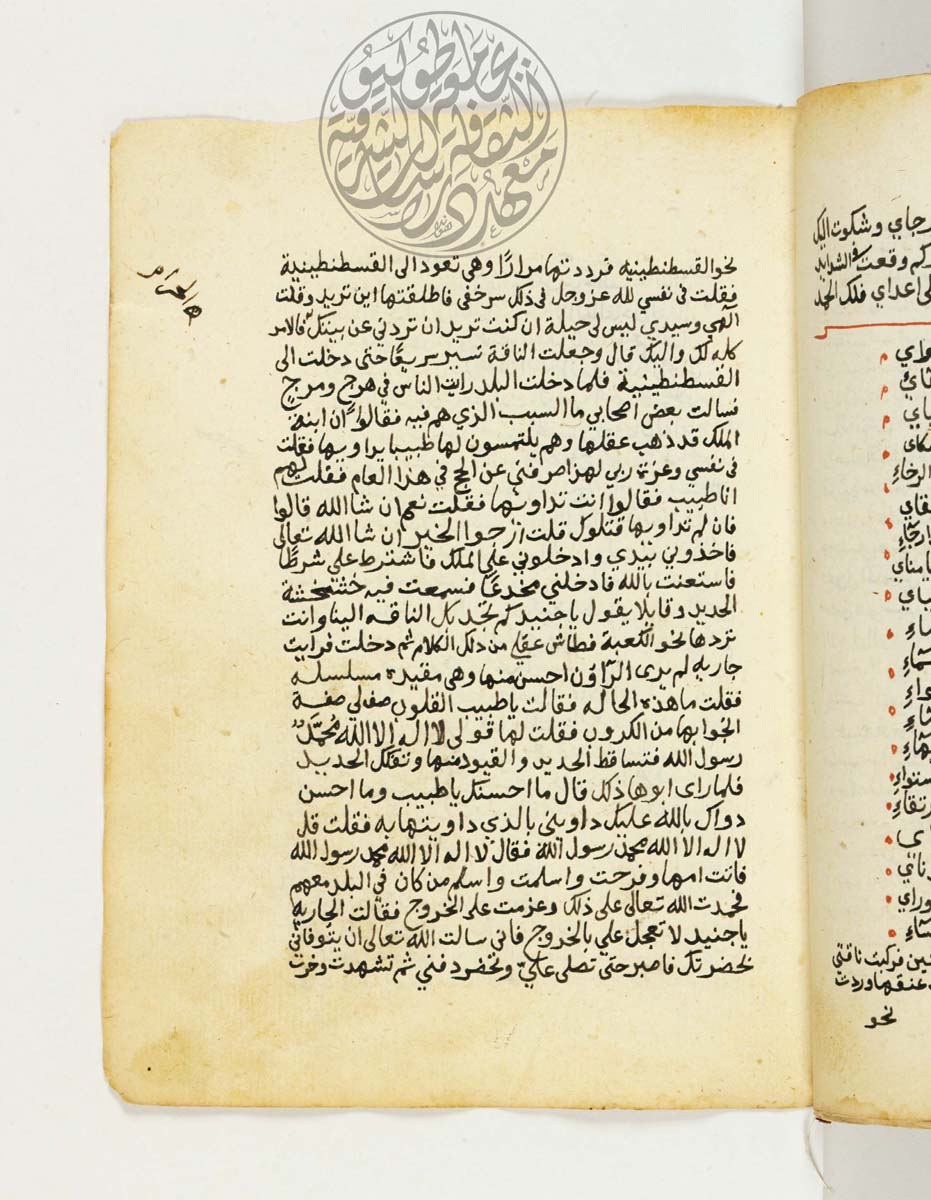 نحو القسطنطينيه فرددتها مرارًا وهي تعود الى القسطنطينية
فقلت فى نفسي لله عز وجل فى ذلك سر خفى فاطلقتها اين تريد وقلت
الهي وسيدي ليس لى حيلة ان كنت تريد ان تردني عن بيتك فالامر
كله لك واليك قال وجعلت الناقة تسير سريعًا حتى دخلت الى
القسطنطينية فلما دخلت البلد رايت الناس في هرج ومرج
فسالت بعض اصحابي ما السبب الذي هم فيه فقالوا ان ابنة
الملك قد ذهب عقلها وهم يلتمسون لها طبيبا يداويها فقلت
فى نفسي وعزة ربى لهذا صرفني عن الحج في هذا العام فقلت لهم
انا طبيب فقالوا انت تداويها فقلت نعم ان شا الله قالوا
فان لم تداويها قتلوك قلت ارجوا الخير ان شا الله تعالى
فاخذوني بيدي وادخلوني على الملك فاشترط على شرطًا
فاستعنت بالله فادخلني مخدعًا فسمعت فيه خشخشة
الحديد وقايلا يقول ياجنيد كم تجد بك الناقه الينا وانت
تردها نحو الكعبة فطاش عقلي من ذلك الكلام ثم دخلت فرايت
جاريه لم يرى الراؤن احسن منها وهى مقيده مسلسله
فقلت ما هذه الحاله فقالت ياطبيب القلوب صف لي صفة
انجوا بها من الكروب فقلت لها قولى لا اله الا الله محمد
رسول الله فتساقط الحديد والقيود منها وتفكك الحديد
فلما راى ابوها ذلك قال ما احسنك ياطبيب وما احسن
دواك بالله عليك داويني بالذي داويتها به فقلت قل
لا اله الا الله محمد رسول الله فقال لا اله الا الله محمد رسول الله
فاتت امها وفرحت واسلمت واسلم من كان في البلد معهم
فحمدت الله تعالى على ذلك وعزمت على الخروج فقالت الجاريه
ياجنيد لا تعجل علي بالخروج فاني سالت الله تعالى ان يتوفانى
بحضرتك فاصبر حتى تصلى علىّ وتحفر ودفني ثم تشهدت وخرت
رجاي وشكوت اليك
كم وقعت فى الشدايد
اعداي فلك الحمد
الرخاءِ
يامناي
فركبت ناقتي
عنقها وردت
نحو